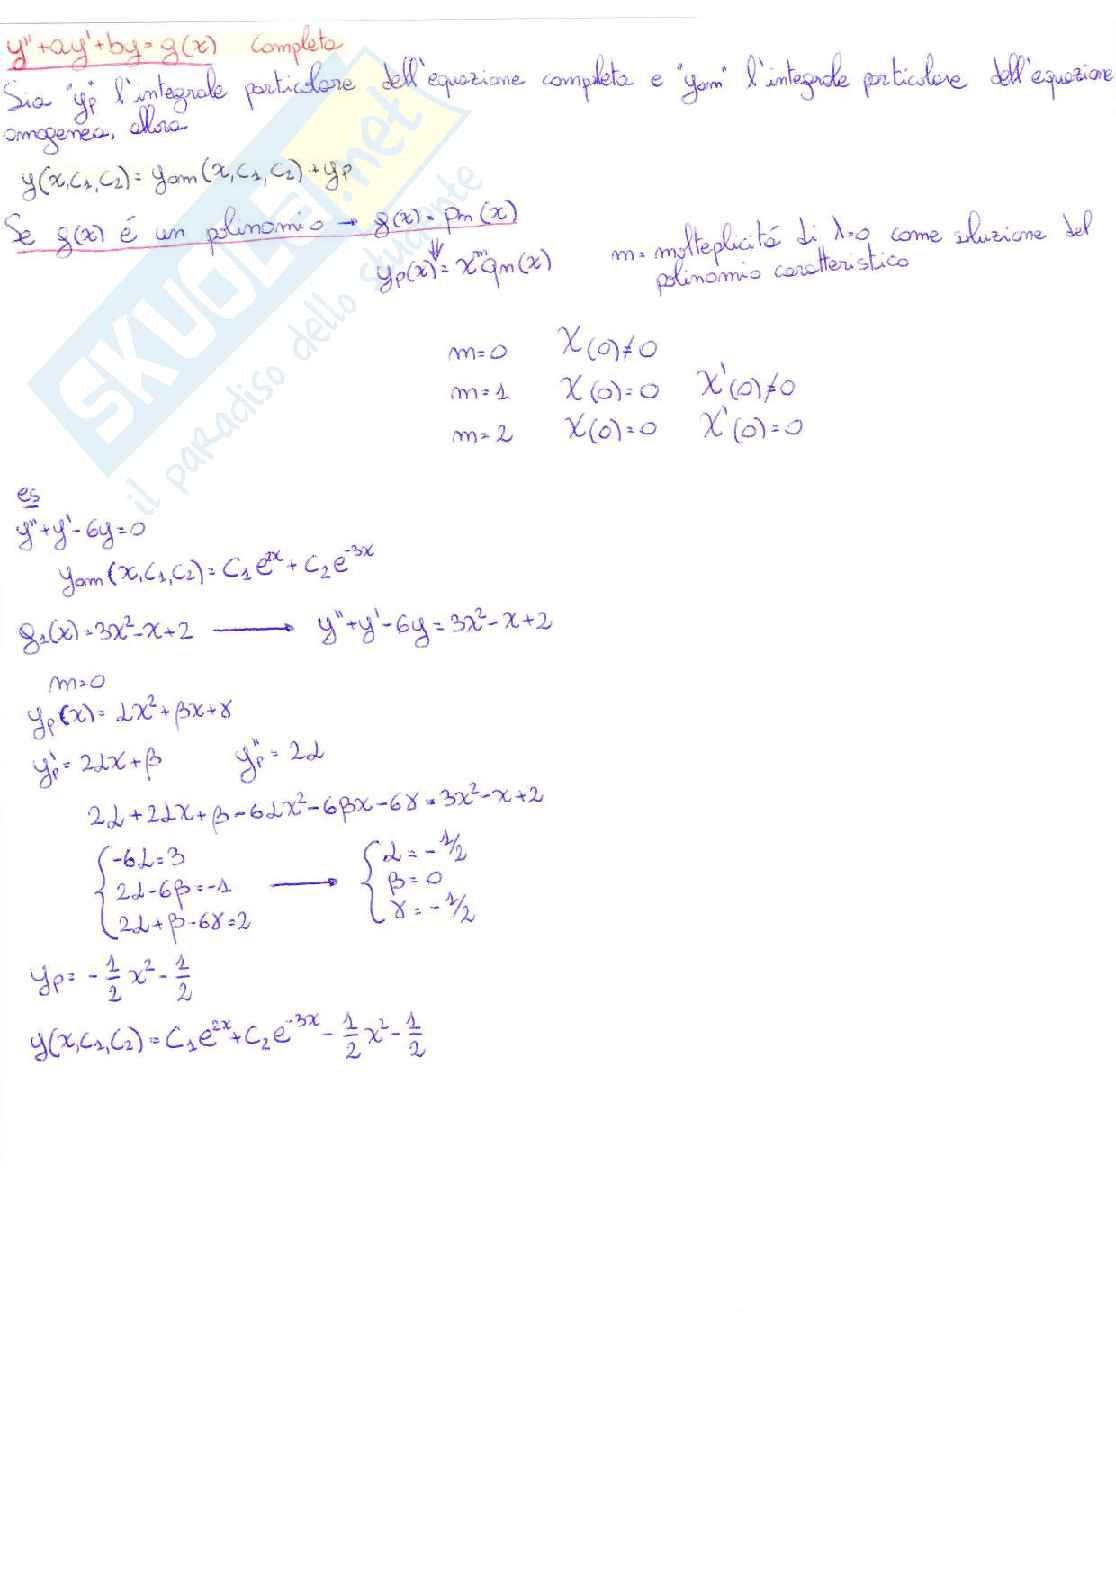 y''+ay'+by=g(x) completa
Sia "yp" l'integrale particolare dell'equazione completa e "yom" l'integrale particolare dell'equazione
omogenea, allora
y(x,c₁,c₂)=yom(x,c₁,c₂)+yp
Se g(x) é un polinomio → g(x)=pn(x)
⇓
yp(x)=xᵐqn(x) m=molteplicitá di λ=0 come soluzione del
polinomio caratteristico
m=0 X(0)≠0
m=1 X(0)=0 X'(0)≠0
m=2 X(0)=0 X'(0)=0
es
y''+y'-6y=0
yom(x,c₁,c₂)=c₁e²ˣ+c₂e⁻³ˣ
g₁(x)=3x²-x+2 → y''+y'-6y=3x²-x+2
m=0
yp(x)=αx²+βx+γ
yp'=2αx+β yp''=2α
2α+2αx+β-6αx²-6βx-6γ=3x²-x+2
{-6α=3 {α=-1/2
2α-6β=-1 → β=0
2α+β-6γ=2 γ=-1/2
yp=-1/2 x²-1/2
y(x,c₁,c₂)=c₁e²ˣ+c₂e⁻³ˣ-1/2 x²-1/2
SKUOLA.net
il paradiso dello studente